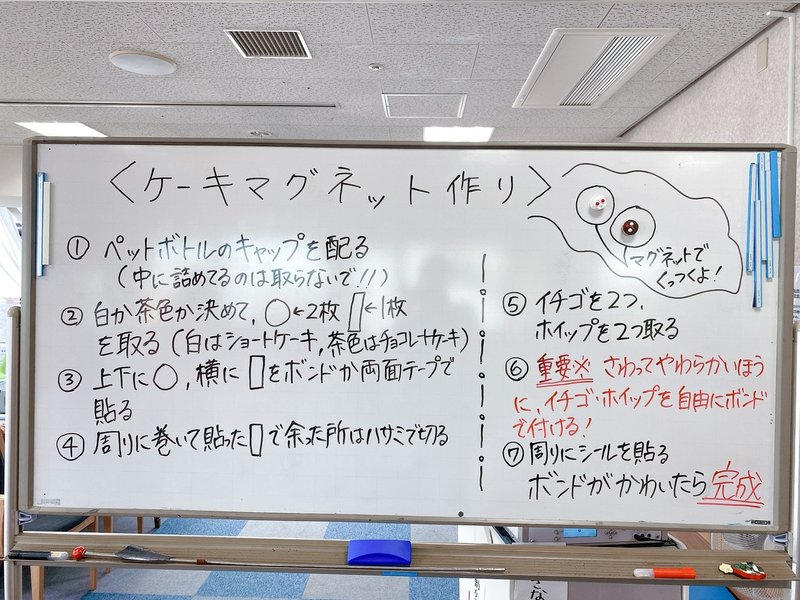 ＜ケーキマグネット作り＞
マグネットで
くっつくよ!
① ペットボトルのキャップを配る
(中に詰めてるのは取らないで!!)
② 白か茶色か決めて、○←2枚 ▯←1枚
を取る (白はショートケーキ,茶色はチョコレートケーキ)
③ 上下に○,横に▯をボンドか両面テープで
貼る
④ 周りに巻いて貼った▯で余った所はハサミで切る
⑤ イチゴを2つ,
ホイップを2つ取る
⑥ 重要※ さわってやわらかいほう
に、イチゴ・ホイップを自由にボンド
で付ける!
⑦ 周りにシールを貼る
ボンドがかわいたら完成